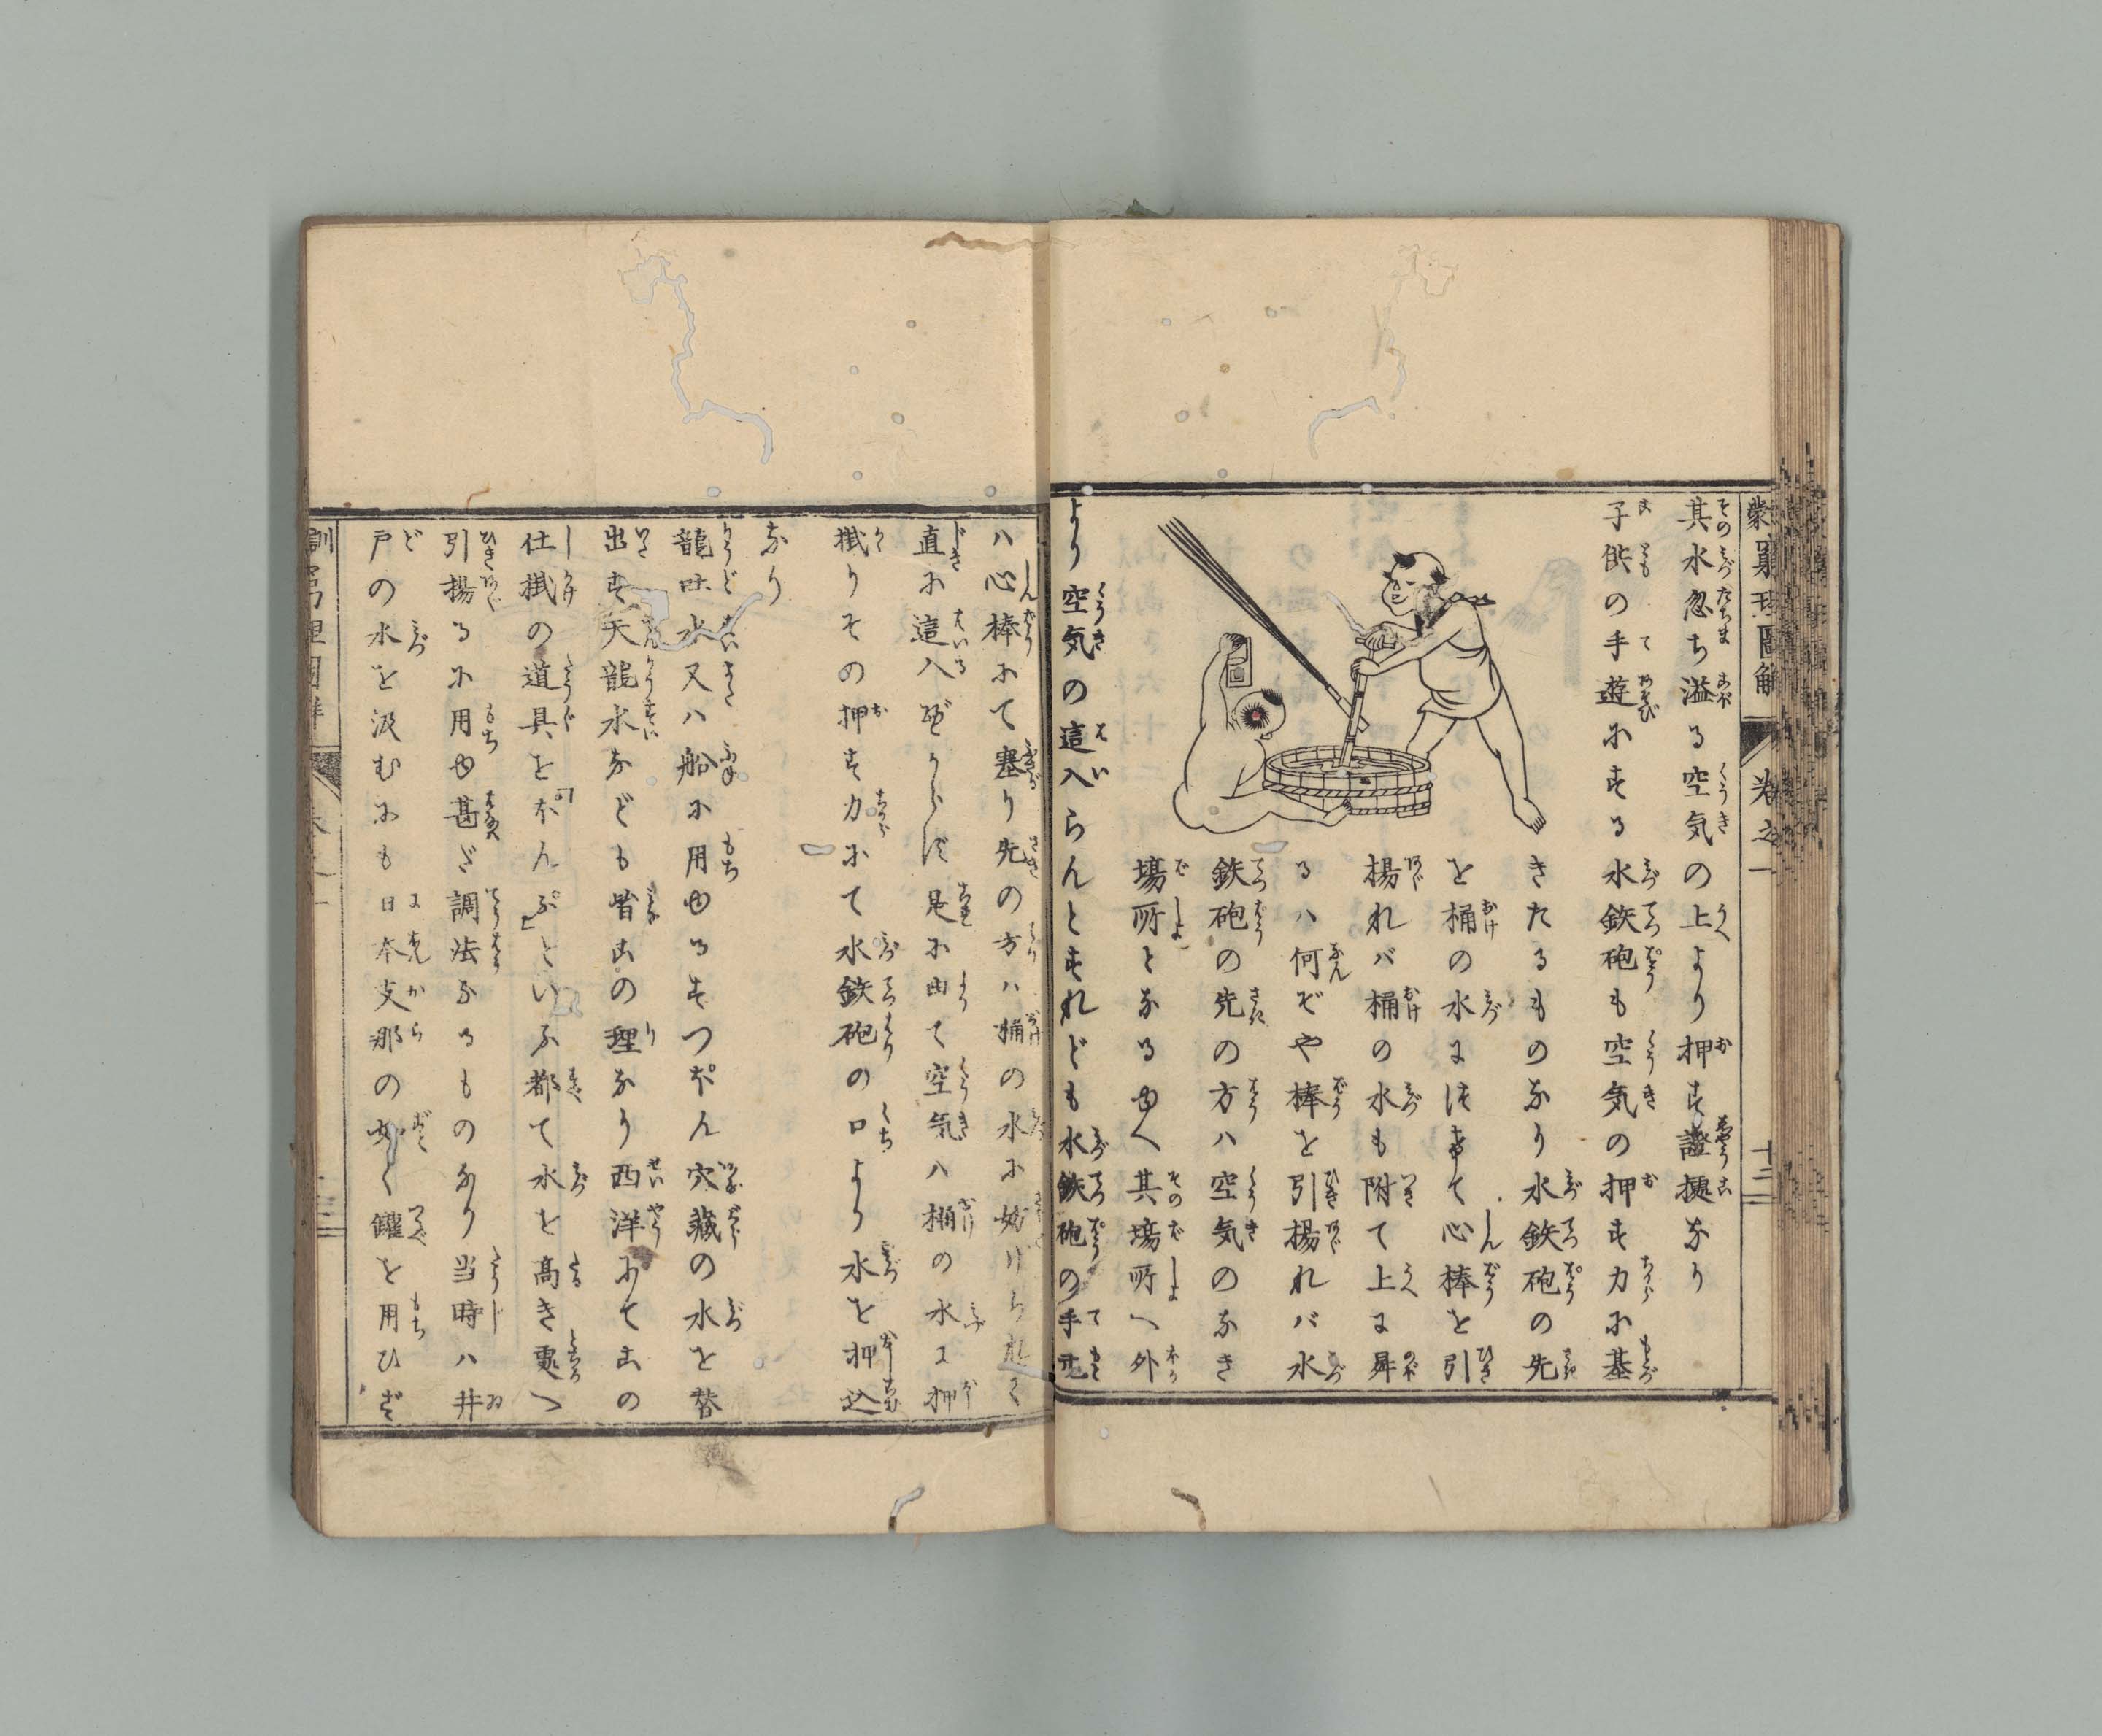 窮理圖解
卷之一
十二
其水忽ち溢る空気の上より押す證據なり
子供の手遊にする水鉄砲も空気の押す力に基
きたるものなり水鉄砲の先
を桶の水に漬て心棒を引
揚れバ桶の水も附て上に昇
るハ何ぞや棒を引揚れバ水
鉄砲の先の方ハ空気のなき
場所となるゆへ其場所へ外
より空気の這入らんとすれども水鉄砲の手元
ハ心棒にて塞り先の方ハ桶の水に妨げられ
直に這入べからず是に由て空気ハ桶の水に押
掛りその押す力にて水鉄砲の口より水を押込
なり
龍吐水又ハ船に用ゆるすつぽん穴藏の水を替
出す天龍水なども皆この理なり西洋にてこの
仕掛の道具を「ぽんぷ」といふ都て水を高き處へ
引揚るに用ゆ甚ざ調法なるものなり当時ハ井
戸の水を汲むにも日本支那の如く罐を用ひず